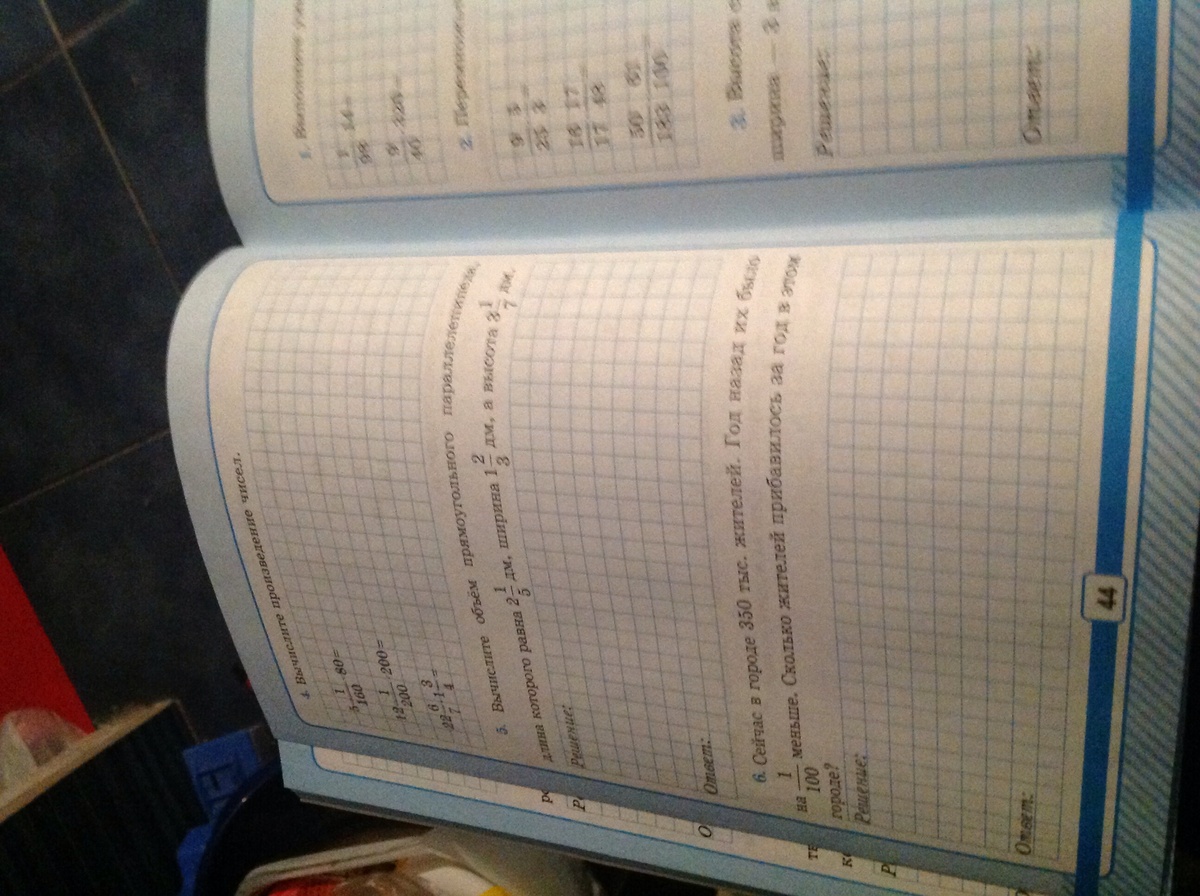 4. Вычислите произведение чисел.
5 1/160 · 80 =
12 1/200 · 200 =
22 6/7 · 1 3/4 =
5. Вычислите объём прямоугольного параллелепипеда,
длина которого равна 2 1/5 дм, ширина 1 2/3 дм, а высота 3 1/7 дм.
Решение:
Ответ:
6. Сейчас в городе 350 тыс. жителей. Год назад их было
на 1/100 меньше. Сколько жителей прибавилось за год в этом
городе?
Решение:
Ответ:
44
1. Выполните
1/98 · 14 =
9/40
2.
9/25 · 5/3 =
16/17 · 17/48 =
3. Высота
ширина — 3
Решение:
Ответ: